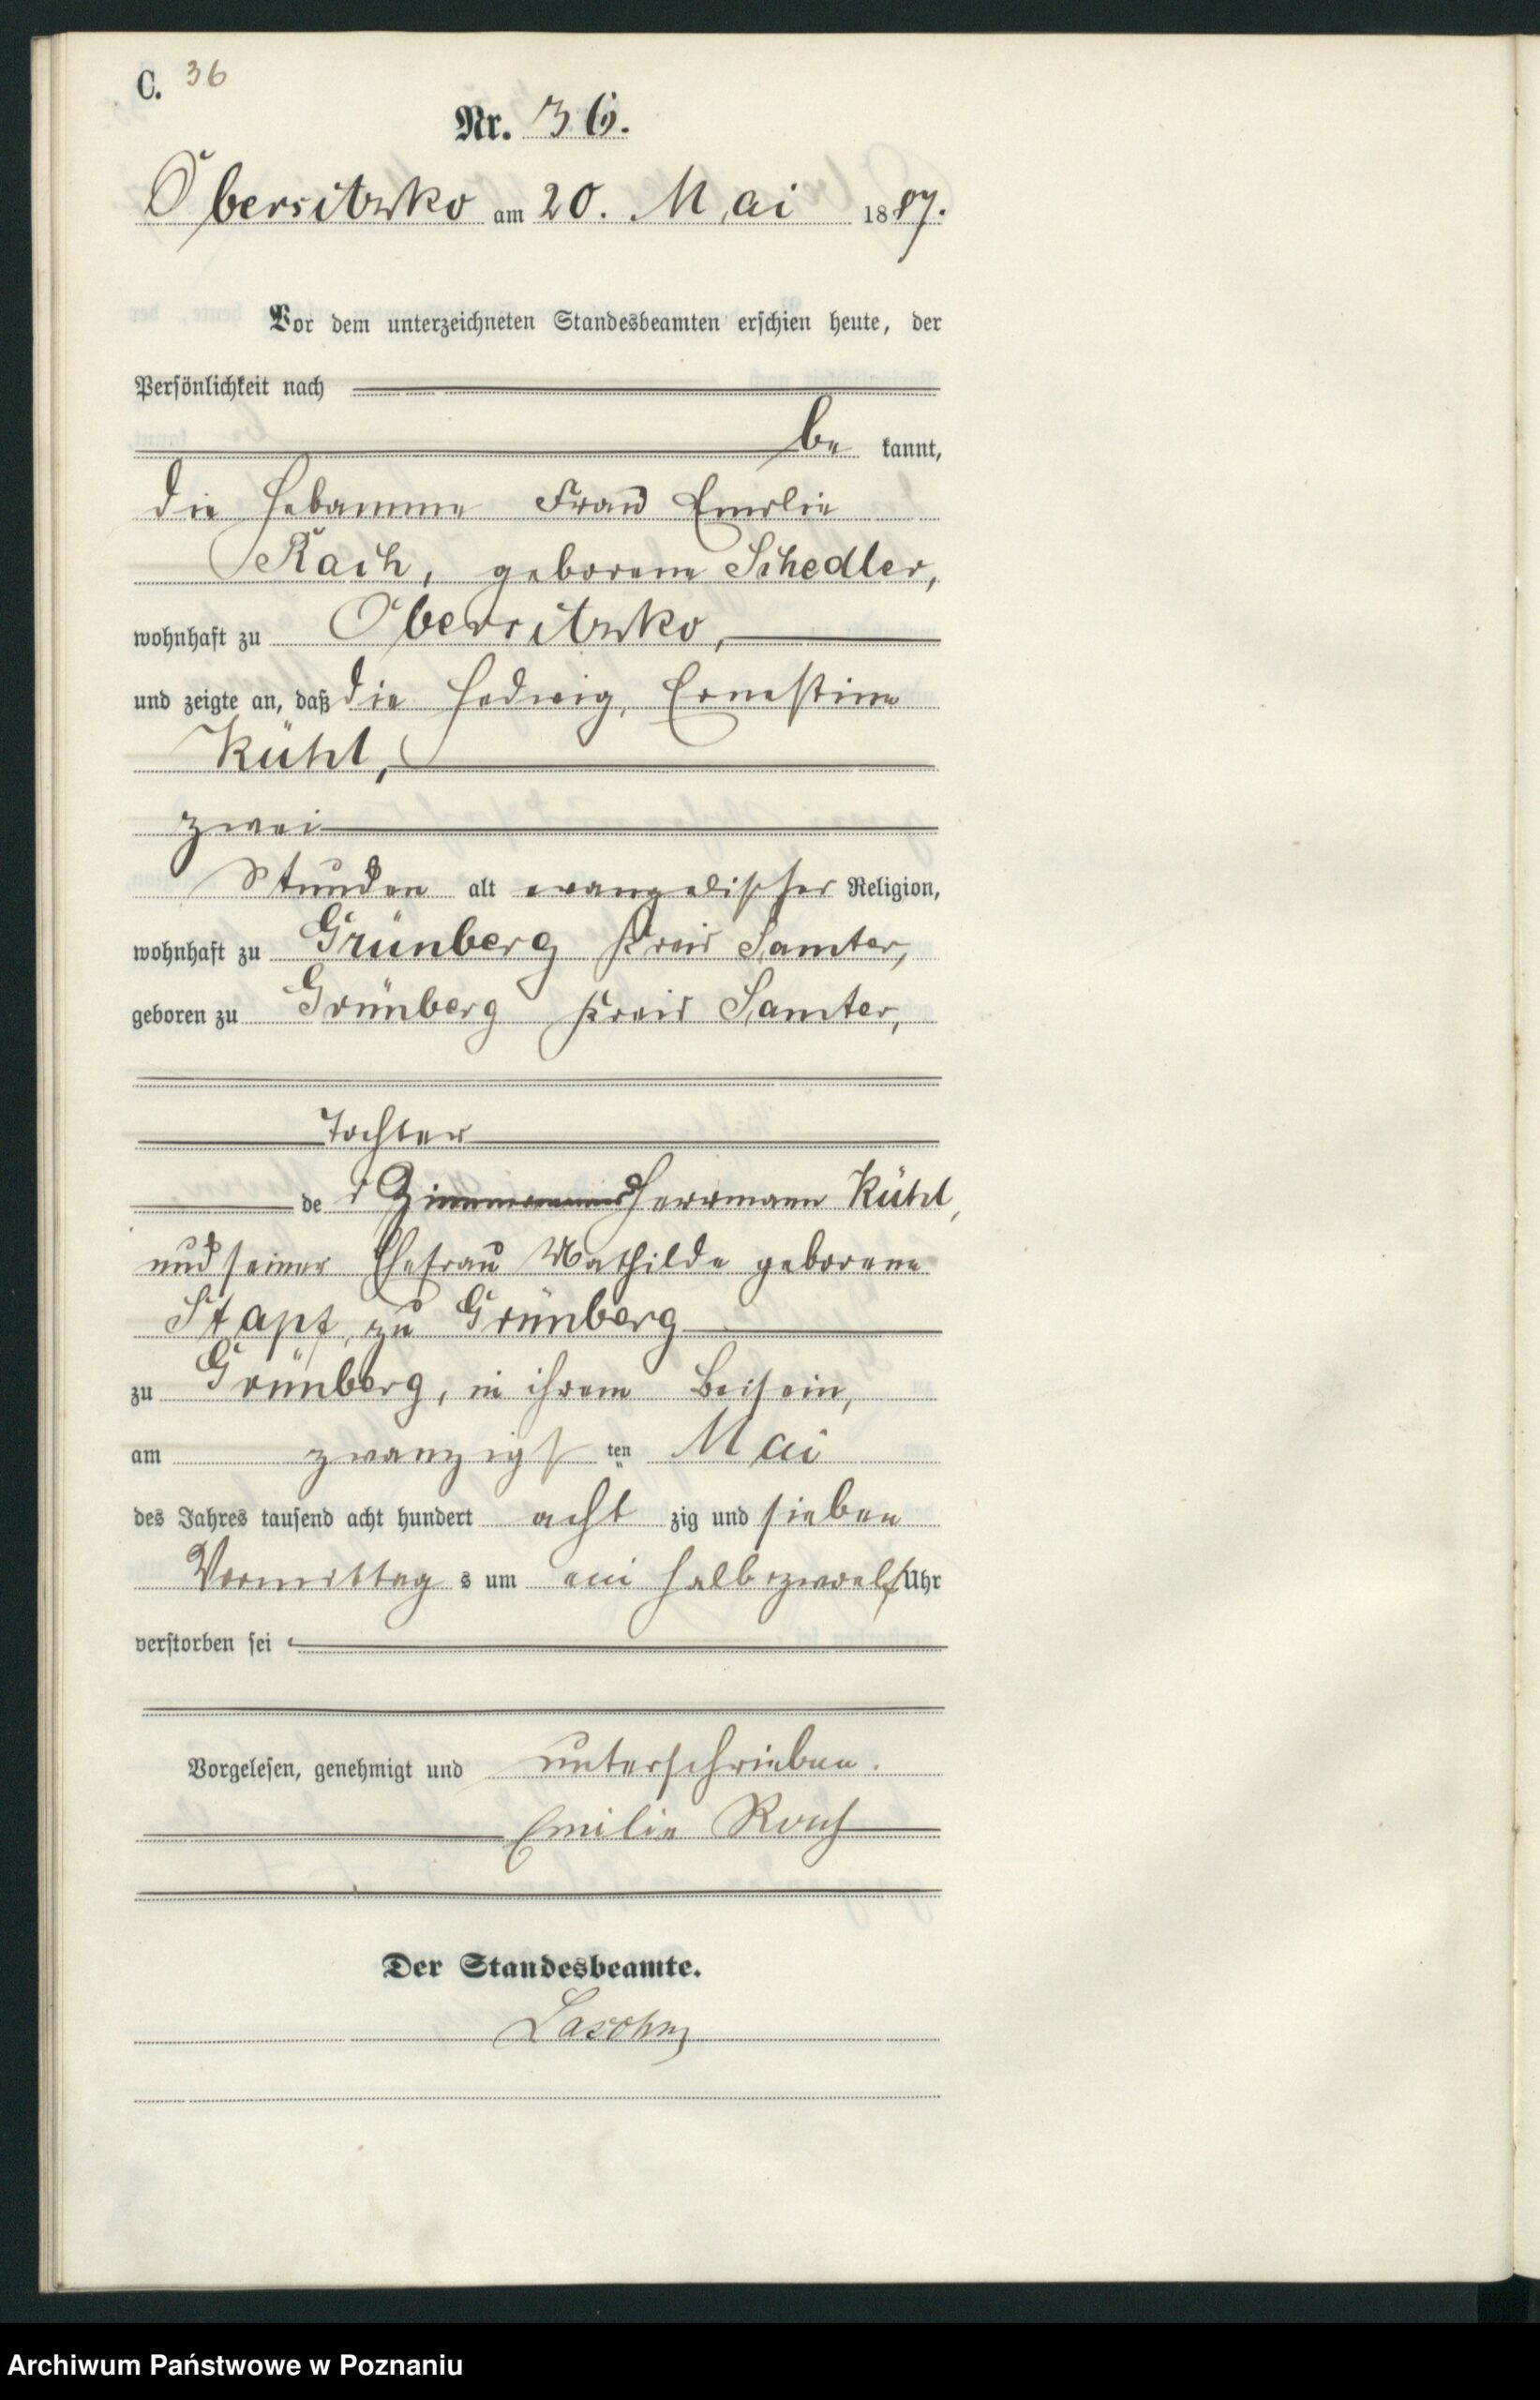 C. 36
Nr. 36.
Obersitzko am 20. Mai 1887.
Vor dem unterzeichneten Standesbeamten erschien heute, der
Persönlichkeit nach
be kannt,
die Hebamme Frau Emilie
Rach, geborene Schedler,
wohnhaft zu Obersitzko,
und zeigte an, daß die Hedwig, Ernestine
Kühl,
zwei
Stunden alt evangelischer Religion,
wohnhaft zu Grünberg Kreis Samter,
geboren zu Grünberg Kreis Samter,
Tochter
de s Herrmann Kühl,
und seiner Ehefrau Mathilde geborene
Stapf, zu Grünberg
zu Grünberg, in ihrem Beisein,
am zwanzigs ten Mai
des Jahres tausend acht hundert acht zig und sieben
Vormittag s um ein halb zwölf Uhr
verstorben sei
Vorgelesen, genehmigt und unterschrieben.
Emilie Rach
Der Standesbeamte.
Archiwum Państwowe w Poznaniu